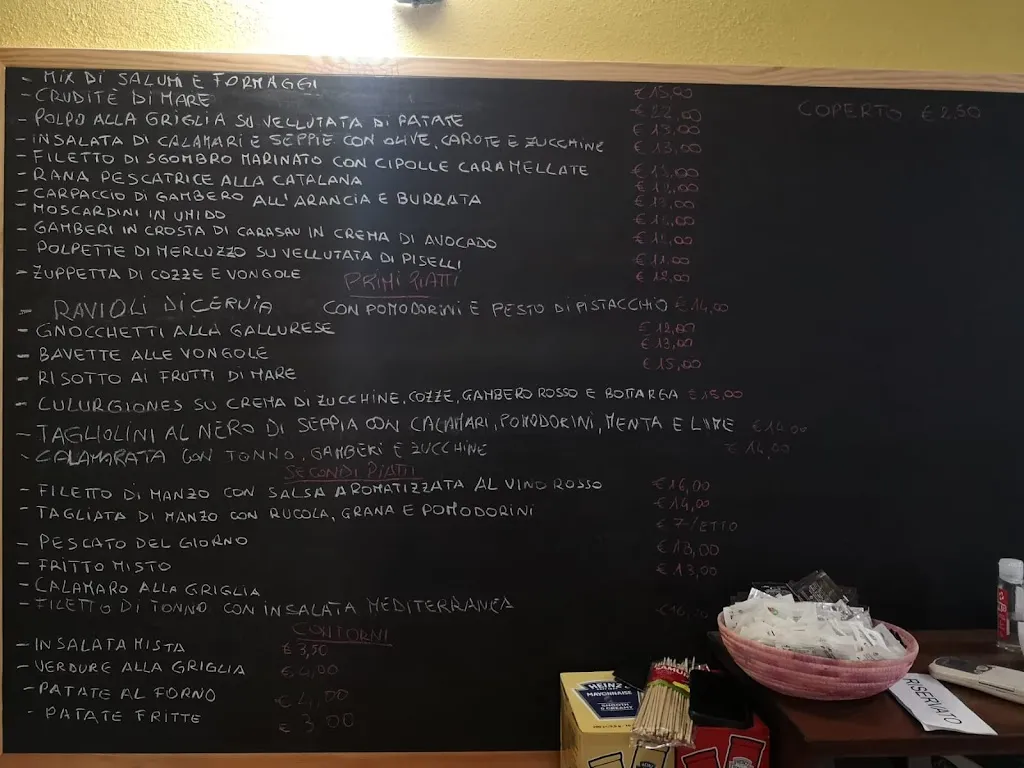 - MIX DI SALUMI E FORMAGGI € 15,00
- CRUDITÈ DI MARE € 22,00
- POLPO ALLA GRIGLIA SU VELLUTATA DI PATATE € 13,00
- INSALATA DI CALAMARI E SEPPIE CON OLIVE, CAROTE E ZUCCHINE € 13,00
- FILETTO DI SGOMBRO MARINATO CON CIPOLLE CARAMELLATE € 13,00
- RANA PESCATRICE ALLA CATALANA
- CARPACCIO DI GAMBERO ALL'ARANCIA E BURRATA € 13,00
- MOSCARDINI IN UMIDO
- GAMBERI IN CROSTA DI CARASAU IN CREMA DI AVOCADO
- POLPETTE DI MERLUZZO SU VELLUTATA DI PISELLI € 11,00
- ZUPPETTA DI COZZE E VONGOLE € 12,00
COPERTO € 2,50
PRIMI PIATTI
- RAVIOLI DI CERNIA CON POMODORINI E PESTO DI PISTACCHIO € 14,00
- GNOCCHETTI ALLA GALLURESE € 12,00
- BAVETTE ALLE VONGOLE € 13,00
- RISOTTO AI FRUTTI DI MARE € 15,00
- CULURGIONES SU CREMA DI ZUCCHINE, COZZE, GAMBERO ROSSO E BOTTARGA € 15,00
- TAGLIOLINI AL NERO DI SEPPIA CON CALAMARI, POMODORINI, MENTA E LIME € 14,00
- CALAMARATA CON TONNO, GAMBERI E ZUCCHINE € 14,00
SECONDI PIATTI
- FILETTO DI MANZO CON SALSA AROMATIZZATA AL VINO ROSSO € 16,00
- TAGLIATA DI MANZO CON RUCOLA, GRANA E POMODORINI € 14,00
- PESCATO DEL GIORNO € 7-/ETTO
- FRITTO MISTO € 13,00
- CALAMARO ALLA GRIGLIA € 13,00
- FILETTO DI TONNO CON INSALATA MEDITERRANEA
CONTORNI
- INSALATA MISTA € 3,50
- VERDURE ALLA GRIGLIA € 4,00
- PATATE AL FORNO € 4,00
- PATATE FRITTE € 3,00
HEINZ
MAYONNAISE
SMOOTH & CREAMY
RISERVATO